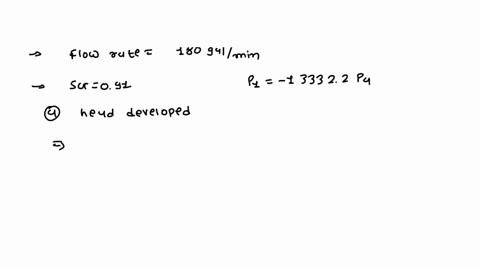 → flow rate = 180 gal/min
→ SG = 0.91 P1 = -13332.2 Pa
ⓐ head developed
⇒